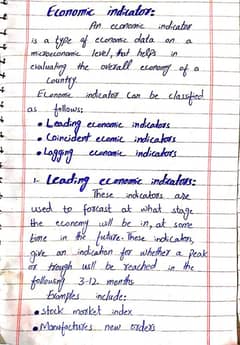 Economic indicator:
An economic indicator
is a type of economic data on a
microeconomic level, that helps in
evaluating the overall economy of a
country.
Economic indicator can be classified
as follows:
• Leading economic indicators
• Coincident ecomic indicators
• Lagging economic indicators
1. Leading economic indicators:
These indicators are
used to forcast at what stage
the economy will be in, at some
time in the future. These indicators,
give an indication for whether a peak
or trough will be reached in the
following 3-12 months
Examples include:
• Stock market index
• Manufactures new orders